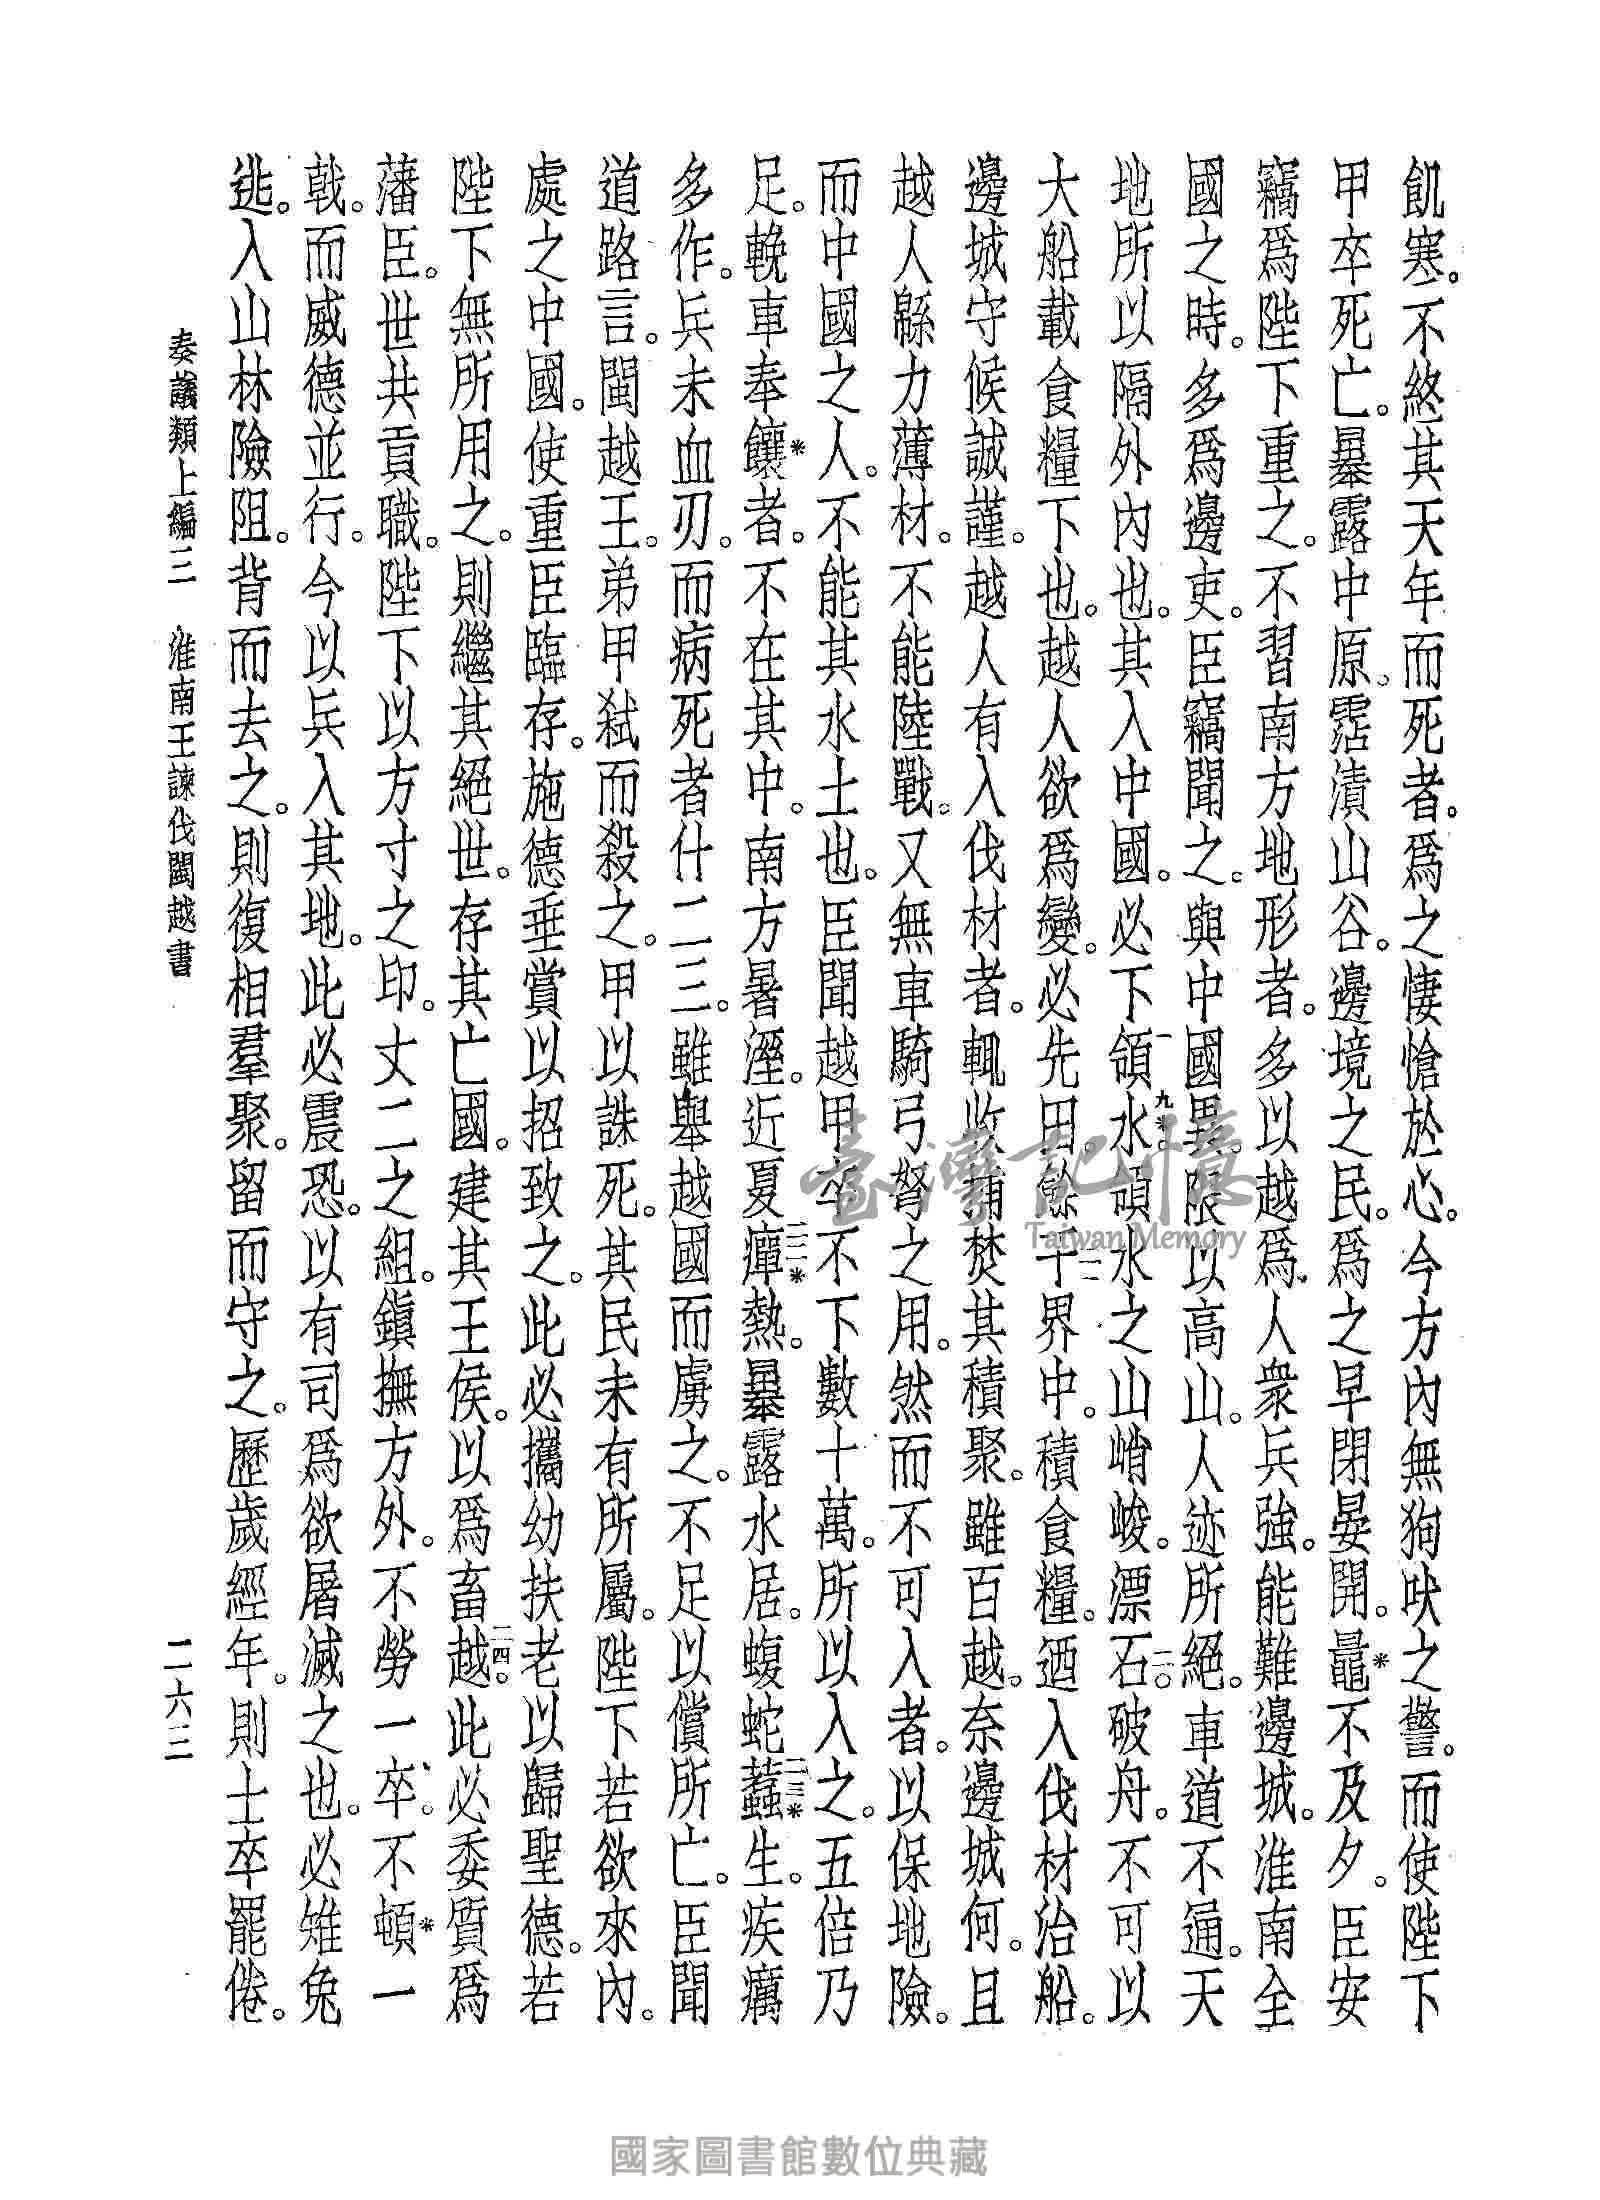 飢寒。不終其天年而死者。爲之悽愴於心。今方內無狗吠之警。而使陛下
甲卒死亡。暴露中原。霑漬山谷。邊境之民。爲之早閉晏開。鼂*不及夕。臣安
竊爲陛下重之。不習南方地形者。多以越爲人衆兵強。能難邊城。淮南全
國之時。多爲邊吏。臣竊聞之。與中國異。限以高山。人迹所絕。車道不通。天
地所以隔外內也。其入中國。必下領水。領水之山峭峻。漂石破舟。不可以
大船載食糧下也。越人欲爲變。必先田餘干界中。積食糧。迺入伐材治船。
邊城守候誠謹。越人有入伐材者。輒收捕焚其積聚。雖百越。奈邊城何。且
越人緜力薄材。不能陸戰。又無車騎弓弩之用。然而不可入者。以保地險。
而中國之人。不能其水土也。臣聞越甲卒不下數十萬。所以入之。五倍乃
足。輓車奉饟*者。不在其中。南方暑溼。近夏癉二二*熱。暴露水居。蝮蛇蠚二三*生。疾癘
多作。兵未血刃。而病死者什二三。雖舉越國而虜之。不足以償所亡。臣聞
道路言。閩越王。弟甲弒而殺之。甲以誅死。其民未有所屬。陛下若欲來內。
處之中國。使重臣臨存。施德垂賞以招致之。此必攜幼扶老以歸聖德。若
陛下無所用之。則繼其絕世。存其亡國。建其王侯。以爲畜越二四。此必委質爲
藩臣。世共貢職。陛下以方寸之印。丈二之組。鎭撫方外。不勞一卒。不頓*一
戟。而威德並行。今以兵入其地。此必震恐。以有司爲欲屠滅之也。必雉兔
逃。入山林險阻。背而去之。則復相羣聚。留而守之。歷歲經年。則士卒罷倦。
奏議類上編三 淮南王諫伐閩越書
二六三
臺灣記憶
Taiwan Memory
國家圖書館數位典藏